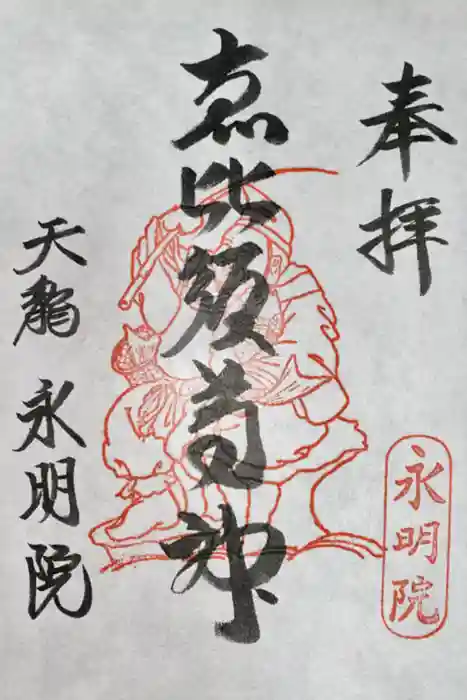 奉拝
永明院
恵比須尊神
天龍
永明院